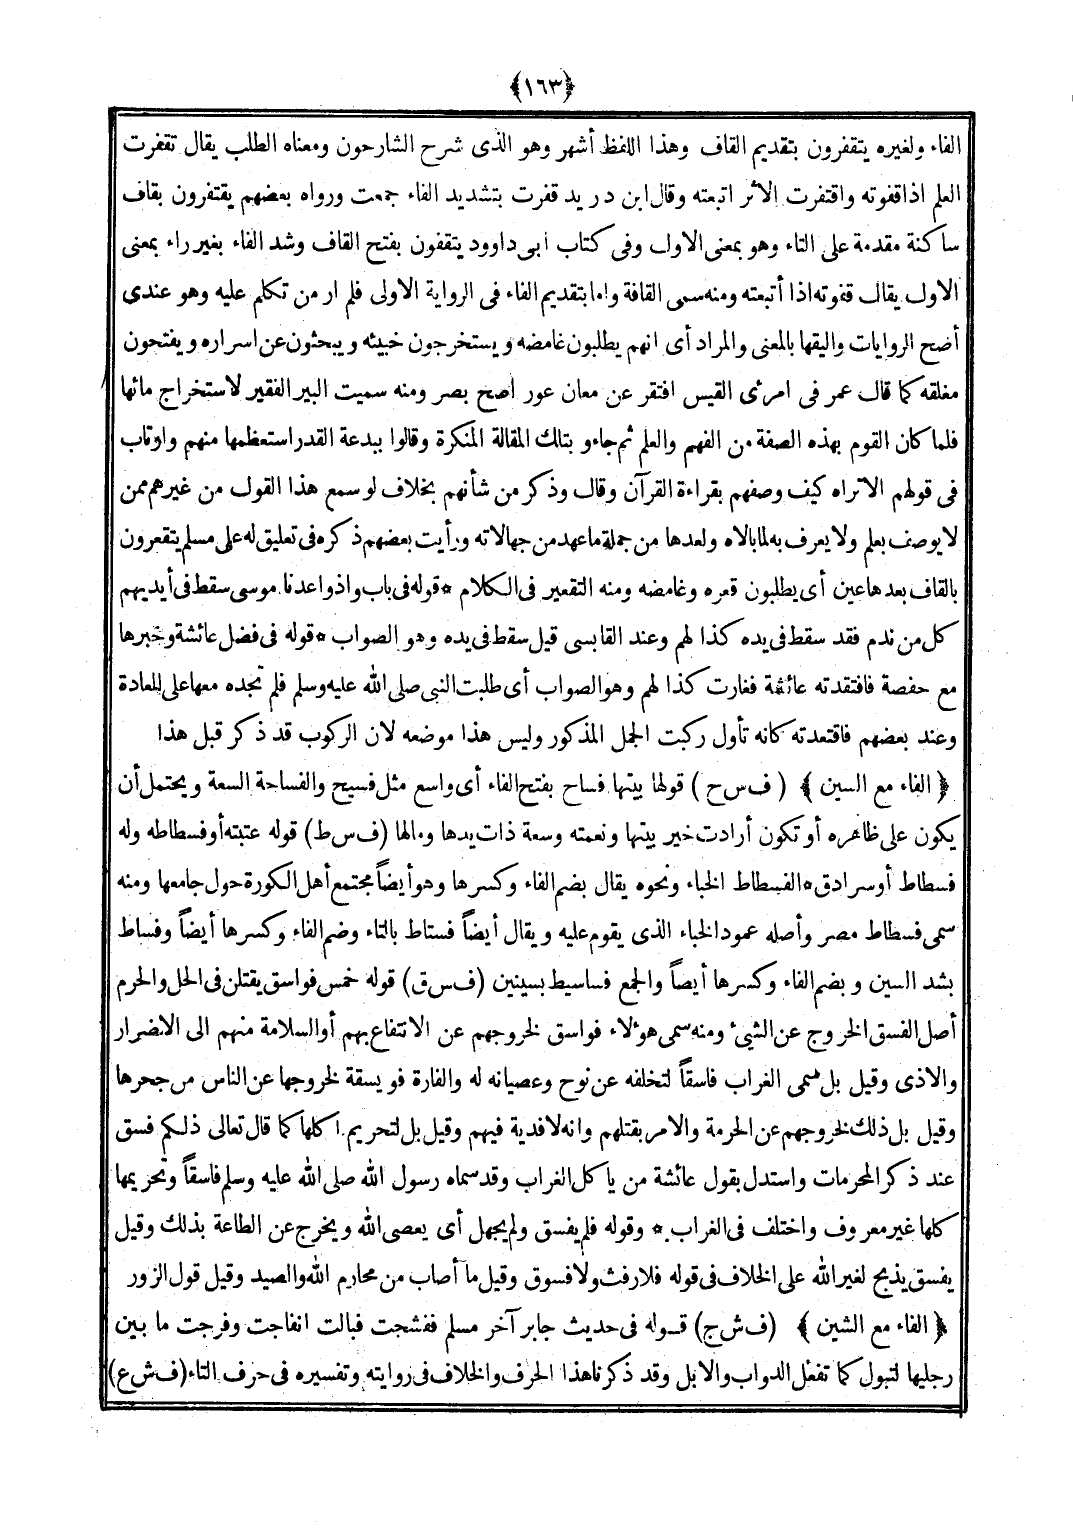 ﴿١٦٣﴾
الفاء ولغيره يتقفرون بتقديم القاف وهذا اللفظ أشهر وهو الذى شرح الشارحون ومعناه الطلب يقال تقفرت
العلم اذا قفوته واقتفرت الأثر اتبعته وقال ابن دريد قفرت بتشديد الفاء جمعت ورواه بعضهم يقتفرون بقاف
ساكنة مقدمة على التاء وهو بمعنى الاول وفى كتاب ابى داوود يتقفون بفتح القاف وشد الفاء بغير راء بمعنى
الاول يقال قفوته اذا أتبعته ومنه سمى القافة واما بتقديم الفاء فى الرواية الاولى فلم ار من تكلم عليه وهو عندى
أصح الروايات واليقها بالمعنى والمراد أى انهم يطلبون غامضه ويستخرجون خبيئه ويبحثون عن اسراره ويفتحون
مغلقه كما قال عمر فى امرئ القيس افتقر عن معان عور اصح بصر ومنه سميت البير الفقير لاستخراج مائها
فلما كان القوم بهذه الصفة من الفهم والعلم ثم جاءو بتلك المقالة المنكرة وقالوا ببدعة القدر استعظمها منهم وارتاب
فى قولهم الاتراه كيف وصفهم بقراءة القرآن وقال وذكر من شأنهم بخلاف لو سمع هذا القول من غيرهم ممن
لا يوصف بعلم ولا يعرف به لما بالاه ولعدها من جملة ما عهد من جهالاته ورأيت بعضهم ذكره فى تعليق له على مسلم يتقعرون
بالقاف بعدها عين أى يطلبون قعره وغامضه ومنه التقعير فى الكلام * قوله فى باب واذ واعدنا موسى سقط فى أيديهم
كل من ندم فقد سقط فى يده كذا لهم وعند القابسى قيل سقط فى يده وهو الصواب * قوله فى فضل عائشة وخبرها
مع حفصة فافتقدته عائشة فغارت كذا لهم وهو الصواب أى طلبت النبى صلى الله عليه وسلم فلم تجده معها على العادة
وعند بعضهم فاقتعدته كانه تأول ركبت الجمل المذكور وليس هذا موضعه لان الركوب قد ذكر قبل هذا
﴿ الفاء مع السين ﴾ ( ف س ح ) قولها بيتها فساح بفتح الفاء أى واسع مثل فسيح والفساحة السعة ويحتمل أن
يكون على ظاهره أو تكون أرادت خير بيتها ونعمته وسعة ذات يدها ومالها (ف س ط) قوله عتبته أو فسطاطه وله
فسطاط أو سرادق * الفسطاط الخباء ونحوه يقال بضم الفاء وكسرها وهو أيضاً مجتمع أهل الكورة حول جامعها ومنه
سمى فسطاط مصر وأصله عمود الخباء الذى يقوم عليه ويقال أيضاً فستاط بالتاء وضم الفاء وكسرها أيضاً وفساط
بشد السين وبضم الفاء وكسرها أيضاً والجمع فساسيط بسينين (ف س ق) قوله خمس فواسق يقتلن فى الحل والحرم
أصل الفسق الخروج عن الشىء ومنه سمى هؤلاء فواسق لخروجهم عن الانتفاع بهم أو السلامة منهم الى الاضرار
والاذى وقيل بل سمى الغراب فاسقاً لتخلفه عن نوح وعصيانه له والفارة فويسقة لخروجها عن الناس من جحرها
وقيل بل ذلك لخروجهم عن الحرمة والامر بقتلهم وانه لا فدية فيهم وقيل بل لتحريم اكلها كما قال تعالى ذلكم فسق
عند ذكر المحرمات واستدل بقول عائشة من ياكل الغراب وقد سماه رسول الله صلى الله عليه وسلم فاسقاً وتحريمها
كلها غير معروف واختلف فى الغراب * وقوله فلم يفسق ولم يجهل أى يعصى الله ويخرج عن الطاعة بذلك وقيل
يفسق يذبح لغير الله على الخلاف فى قوله فلا رفث ولا فسوق وقيل ما أصاب من محارم الله والصيد وقيل قول الزور
﴿ الفاء مع الشين ﴾ (ف ش ج) قوله فى حديث جابر آخر مسلم ففشجت فبالت انفاجت وفرجت ما بين
رجليها لتبول كما تفعل الدواب والابل وقد ذكرنا هذا الحرف والخلاف فى روايته وتفسيره فى حرف التاء (ف ش ع)